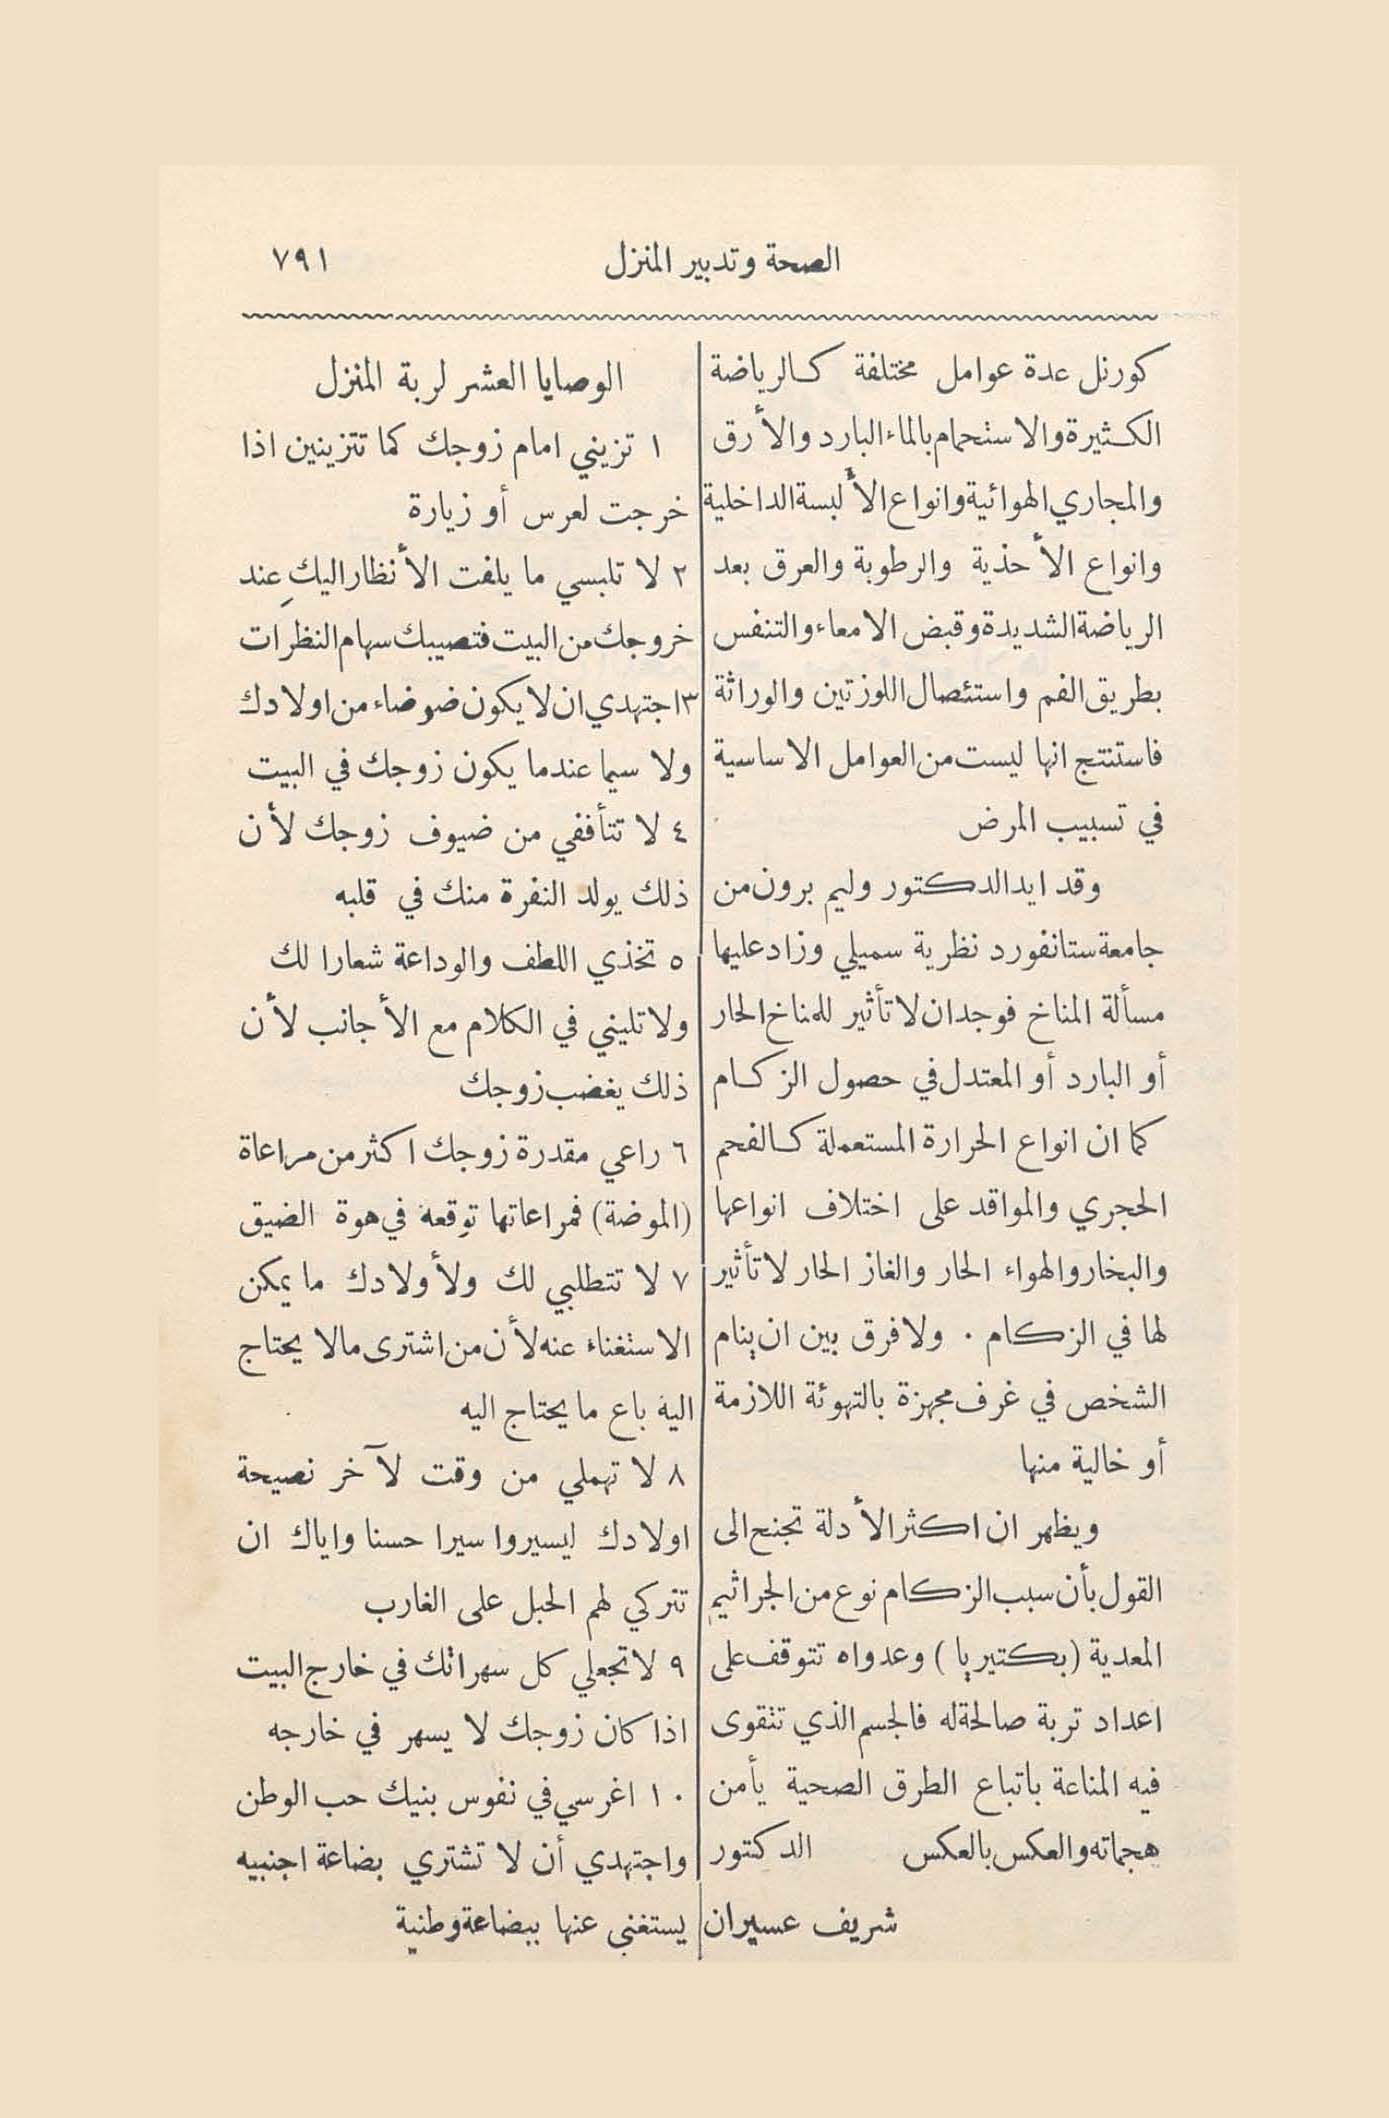 الصحة وتدبير المنزل ٧٩١
كورنل عدة عوامل مختلفة كالرياضة
الكثيرة والاستحمام بالماء البارد والأرق
والمجاري الهوائية وانواع الألبسة الداخلية
وانواع الأحذية والرطوبة والعرق بعد
الرياضة الشديدة وقبض الامعاء والتنفس
بطريق الفم واستئصال اللوزتين والوراثة
فاستنتج انها ليست من العوامل الاساسية
في تسبيب المرض
وقد ايد الدكتور وليم برون من
جامعة ستانفورد نظرية سميلي وزاد عليها
مسألة المناخ فوجد ان لا تأثير للمناخ الحار
أو البارد أو المعتدل في حصول الزكام
كما ان انواع الحرارة المستعملة كالفحم
الحجري والمواقد على اختلاف انواعها
والبخار والهواء الحار والغاز الحار لا تأثير
لها في الزكام . ولا فرق بين ان ينام
الشخص في غرف مجهزة بالتهوئة اللازمة
أو خالية منها
ويظهر ان اكثر الأدلة تجنح الى
القول بأن سبب الزكام نوع من الجراثيم
المعدية (بكتيريا) وعدواه تتوقف على
اعداد تربة صالحة له فالجسم الذي تتقوى
فيه المناعة باتباع الطرق الصحية يأمن
هجماته والعكس بالعكس الدكتور
شريف عسيران
الوصايا العشر لربة المنزل
١ تزيني امام زوجك كما تتزينين اذا
خرجت لعرس أو زيارة
٢ لا تلبسي ما يلفت الأنظار اليكِ عند
خروجك من البيت فتصيبك سهام النظرات
٣ اجتهدي ان لا يكون ضوضاء من اولادك
ولا سيما عندما يكون زوجك في البيت
٤ لا تتأففي من ضيوف زوجك لأن
ذلك يولد النفرة منك في قلبه
٥ تخذي اللطف والوداعة شعارا لك
ولا تليني في الكلام مع الأجانب لأن
ذلك يغضب زوجك
٦ راعي مقدرة زوجك اكثر من مراعاة
(الموضة) فمراعاتها توقعه في هوة الضيق
٧ لا تتطلبي لك ولأولادك ما يمكن
الاستغناء عنه لأن من اشترى مالا يحتاج
اليه باع ما يحتاج اليه
٨ لا تهملي من وقت لآخر نصيحة
اولادك ليسيروا سيرا حسنا واياك ان
تتركي لهم الحبل على الغارب
٩ لا تجعلي كل سهراتك في خارج البيت
اذا كان زوجك لا يسهر في خارجه
١٠ اغرسي في نفوس بنيك حب الوطن
واجتهدي أن لا تشتري بضاعة اجنبيه
يستغنى عنها ببضاعة وطنية